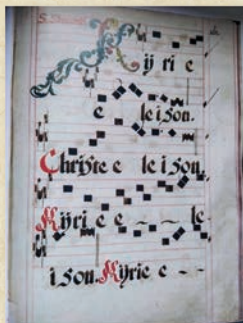 Kyrie
e leison.
Christe e leison
Kyrie e - - le-
ison. Kyrie e - -